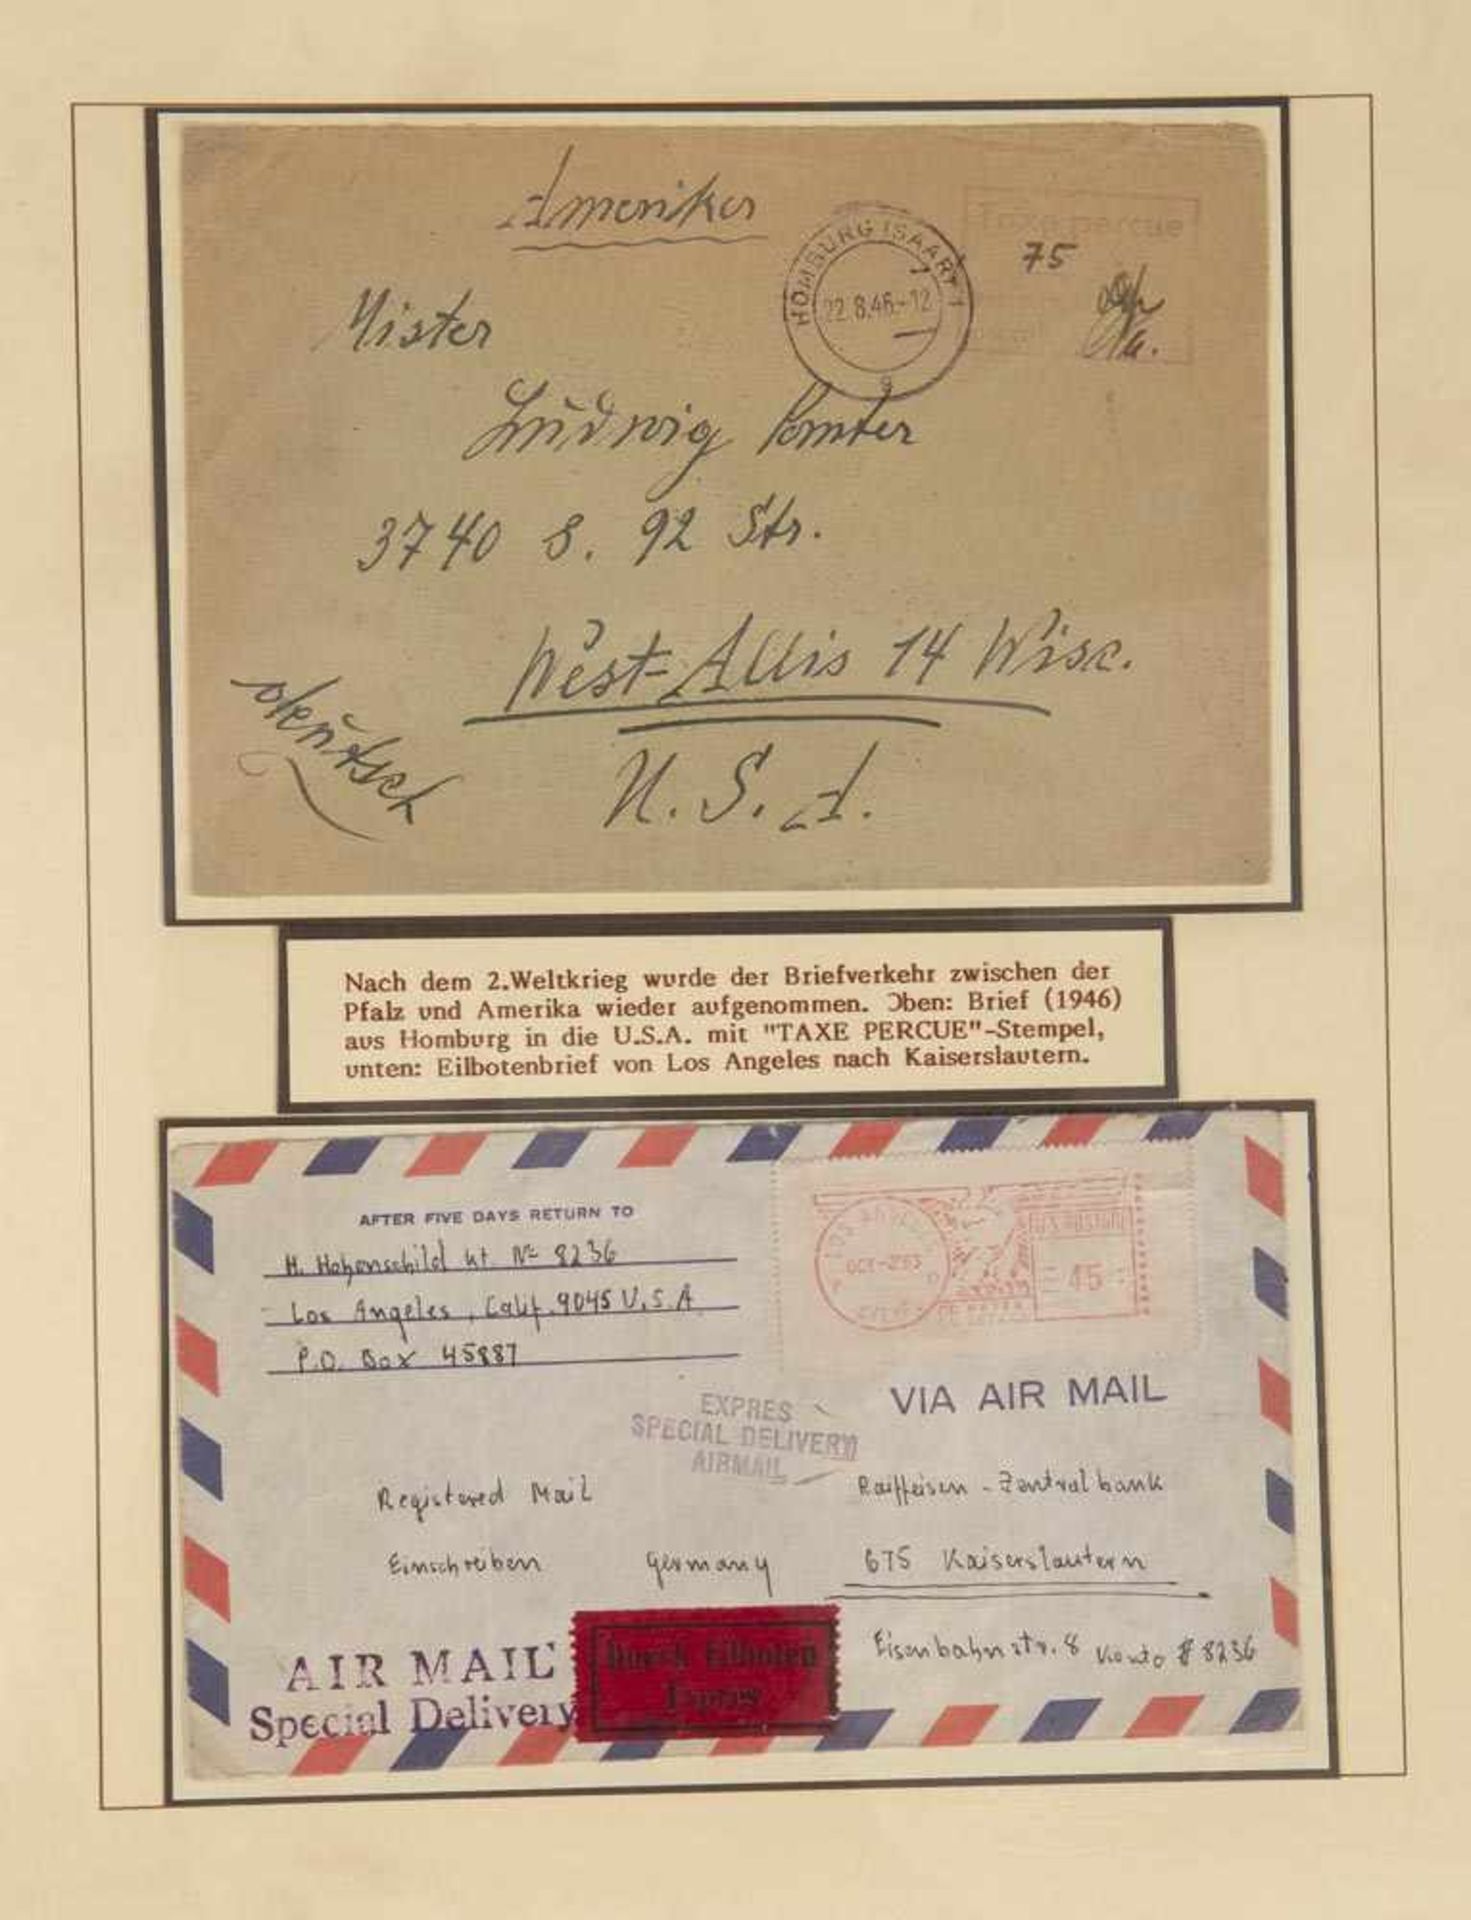 Amerika
Taxe percue
75
HOMBURG (SAAR) 1
22.8.46.-12
Mister
Ludwig
3740 S. 92 Str.
West-Allis 14 Wisc.
U.S.A.
deutsch
Nach dem 2.Weltkrieg wurde der Briefverkehr zwischen der
Pfalz und Amerika wieder aufgenommen. Oben: Brief (1946)
aus Homburg in die U.S.A. mit "TAXE PERCUE"-Stempel,
unten: Eilbotenbrief von Los Angeles nach Kaiserslautern.
AFTER FIVE DAYS RETURN TO
H. Hohenschild kt. No 8236
Los Angeles, Calif. 9045 U.S.A
P.O. Box 45887
LOS ANGELES
U.S. POSTAGE
45
VIA AIR MAIL
EXPRES
SPECIAL DELIVERY
AIRMAIL
Registered Mail
Raiffeisen-Zentralbank
Einschreiben Germany 675 Kaiserslautern
Eisenbahnstr. 8 Konto # 8236
AIR MAIL
Special Delivery
Durch Eilboten
Exprès